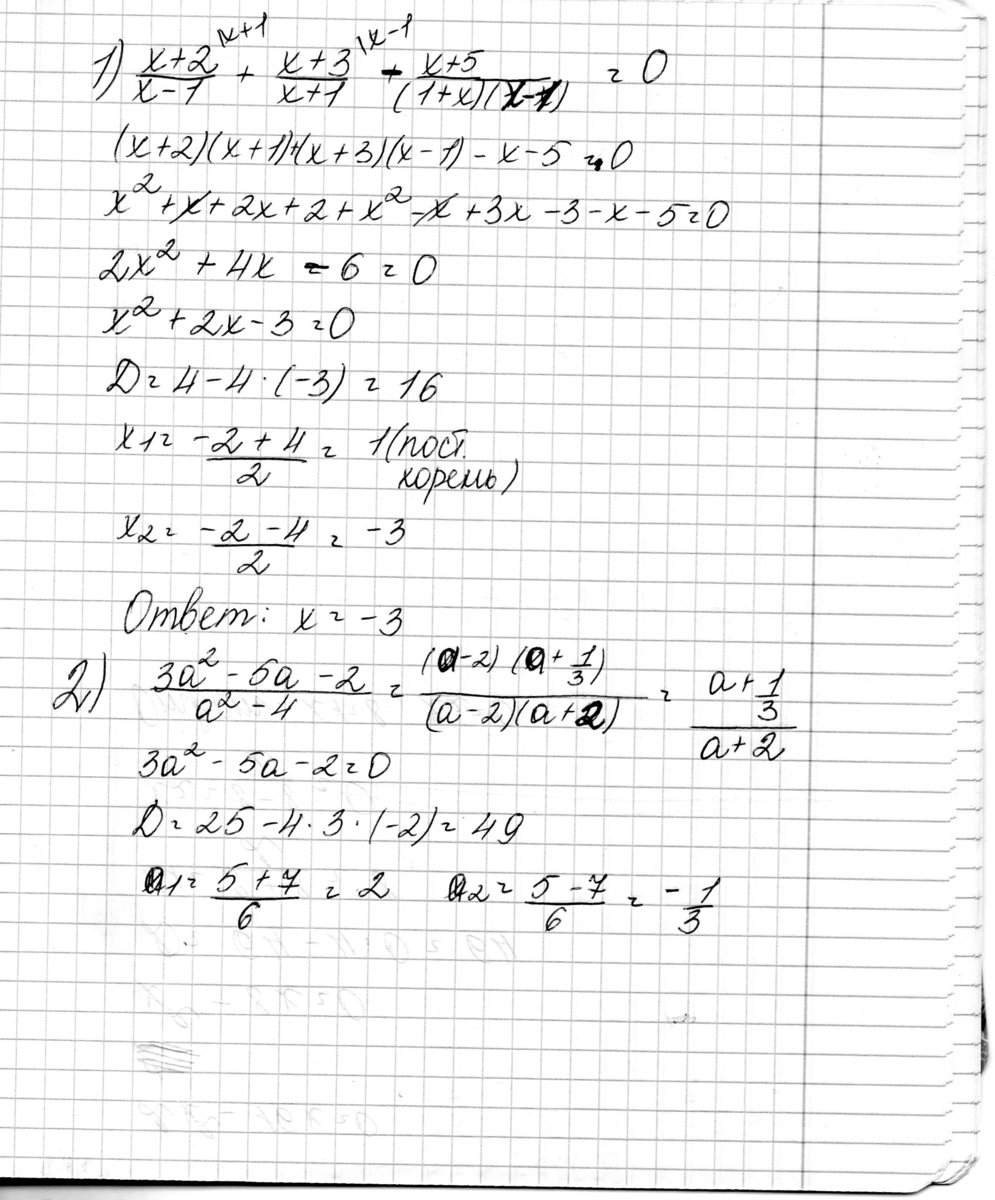 1) \frac{x+2}{x-1}^{|x+1} + \frac{x+3}{x+1}^{|x-1} - \frac{x+5}{(1+x)(x-1)} = 0
(x+2)(x+1)+(x+3)(x-1) - x - 5 = 0
x² + x + 2x + 2 + x² - x + 3x - 3 - x - 5 = 0
2x² + 4x - 6 = 0
x² + 2x - 3 = 0
D = 4 - 4 · (-3) = 16
x1 = \frac{-2 + 4}{2} = 1 (пост. корень)
x2 = \frac{-2 - 4}{2} = -3
Ответ: x = -3
2) \frac{3a² - 5a - 2}{a² - 4} = \frac{(a-2)(a+\frac{1}{3})}{(a-2)(a+2)} = \frac{a+\frac{1}{3}}{a+2}
3a² - 5a - 2 = 0
D = 25 - 4 · 3 · (-2) = 49
a1 = \frac{5+7}{6} = 2 a2 = \frac{5-7}{6} = -\frac{1}{3}